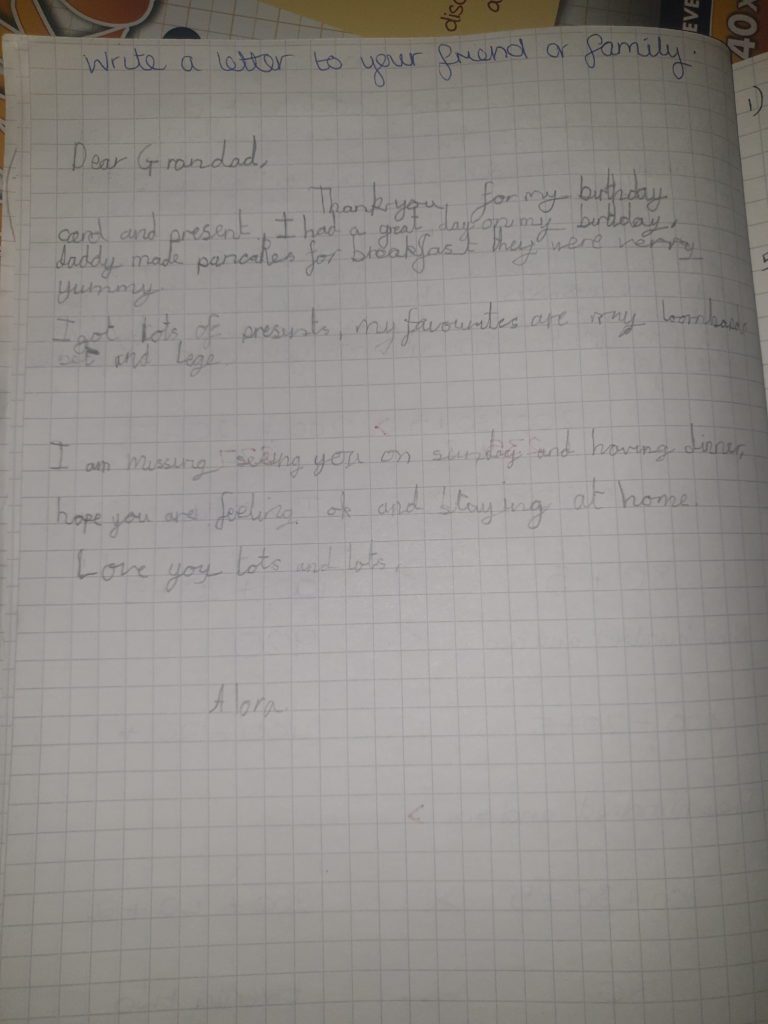 disc
a
EVE
40x
Write a letter to your friend or family.
1)
Dear Grandad,
Thankyou for my birthday
card and present, I had a great day on my birthday,
daddy made pancakes for breakfast they were verry
yummy.
I got lots of presents, my favourites are my
set and lego
I am missing seeing you on sunday and having dinner,
hope you are feeling ok and staying at home.
Love you lots and lots,
Alora